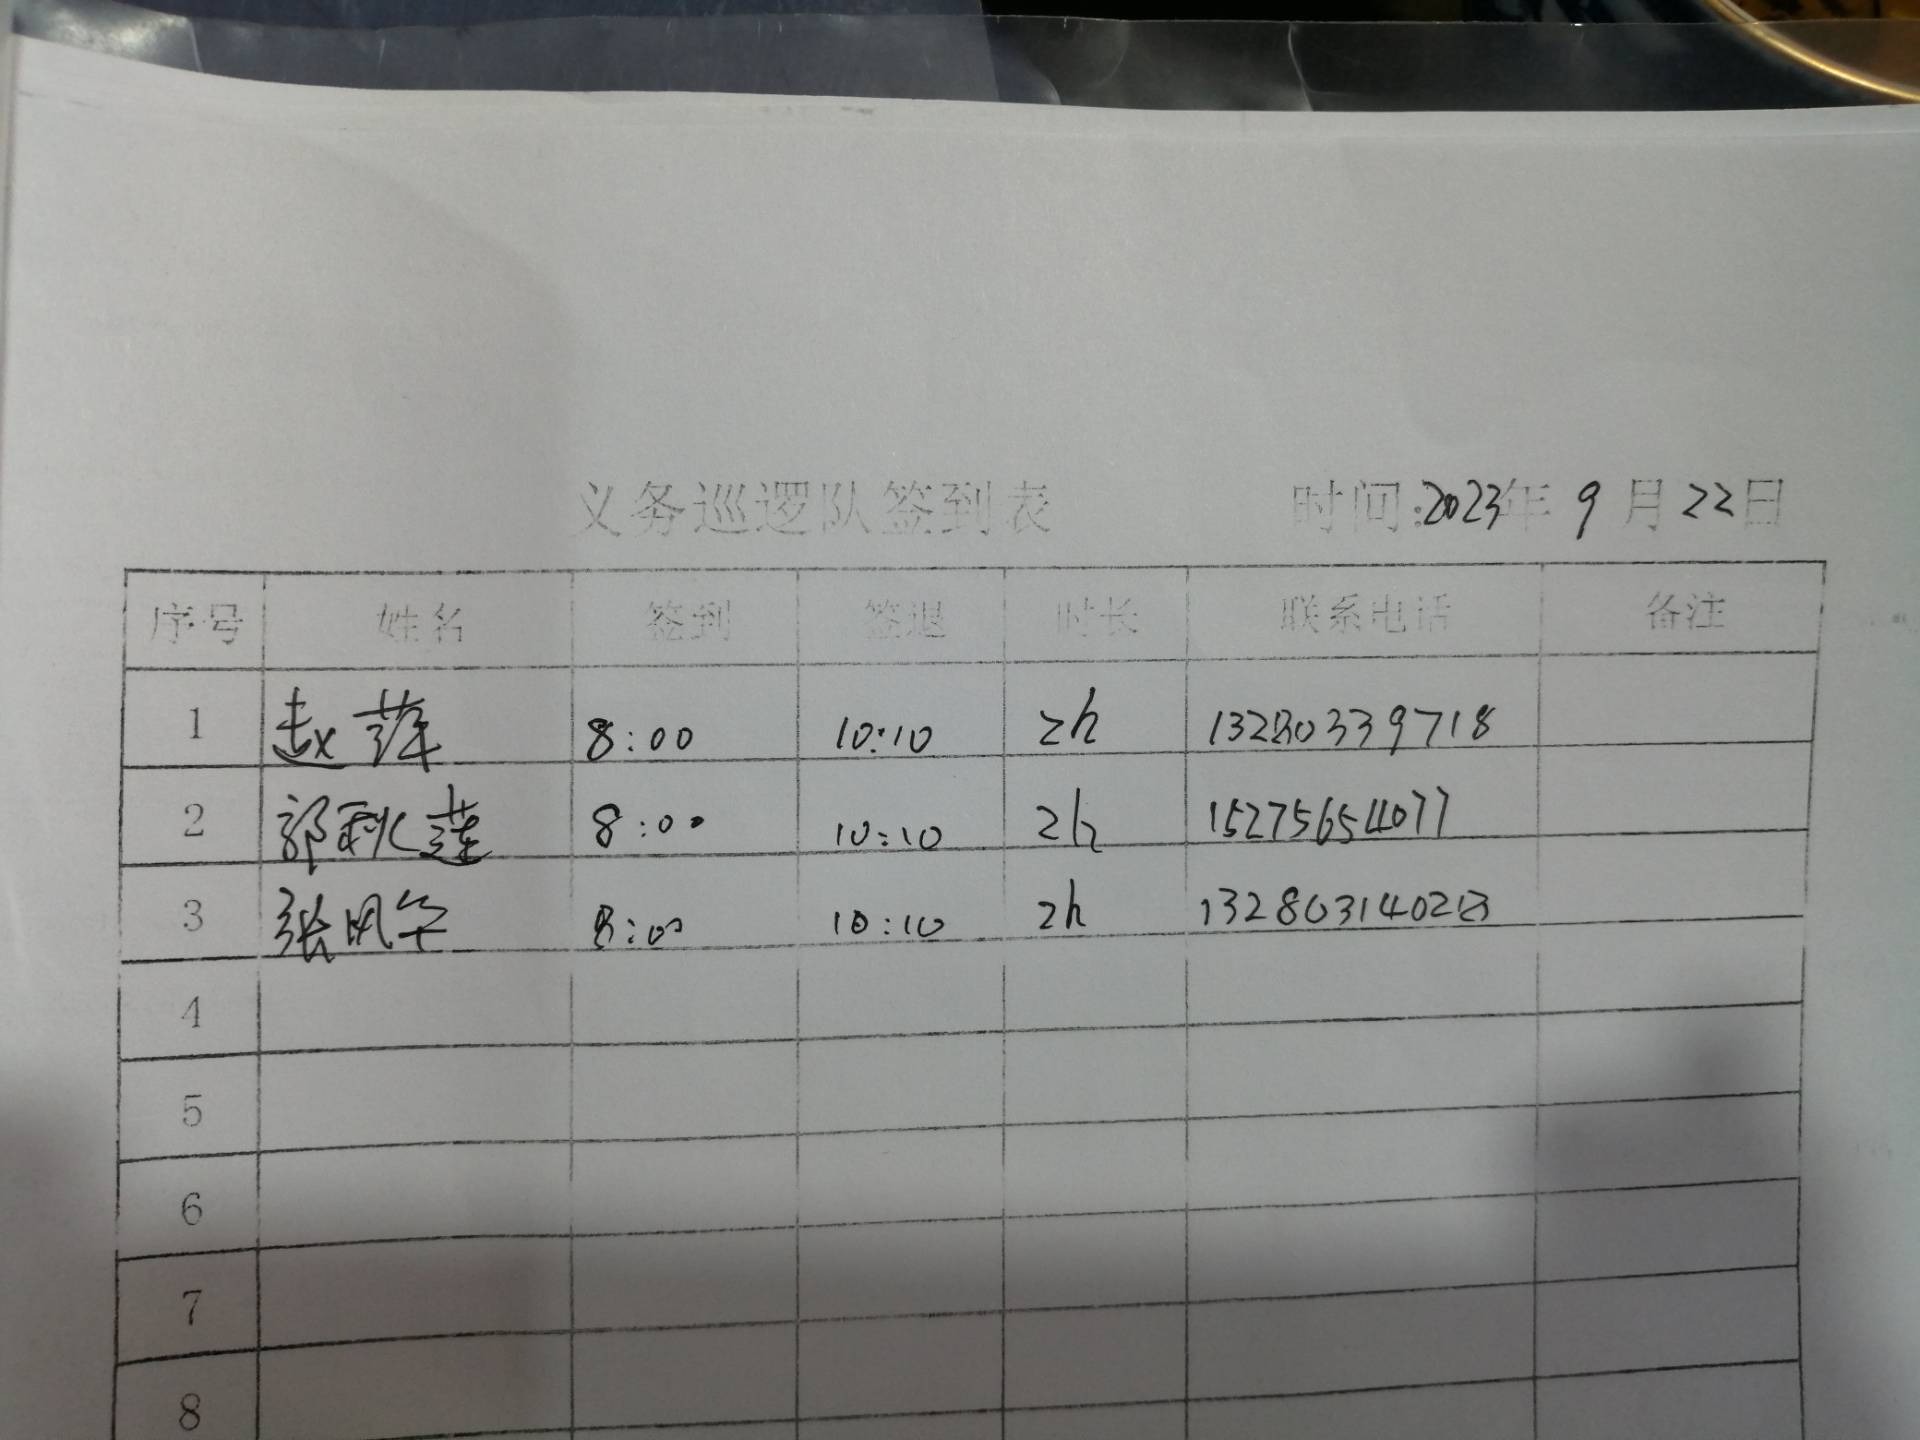 义务巡逻队签到表 时间:2023年9月22日
序号 姓名 签到 签退 时长 联系电话 备注
1 赵萍 8:00 10:10 2h 13280339718
2 郭秋莲 8:00 10:10 2h 15275654077
3 张凤华 8:00 10:10 2h 13280314028
4
5
6
7
8